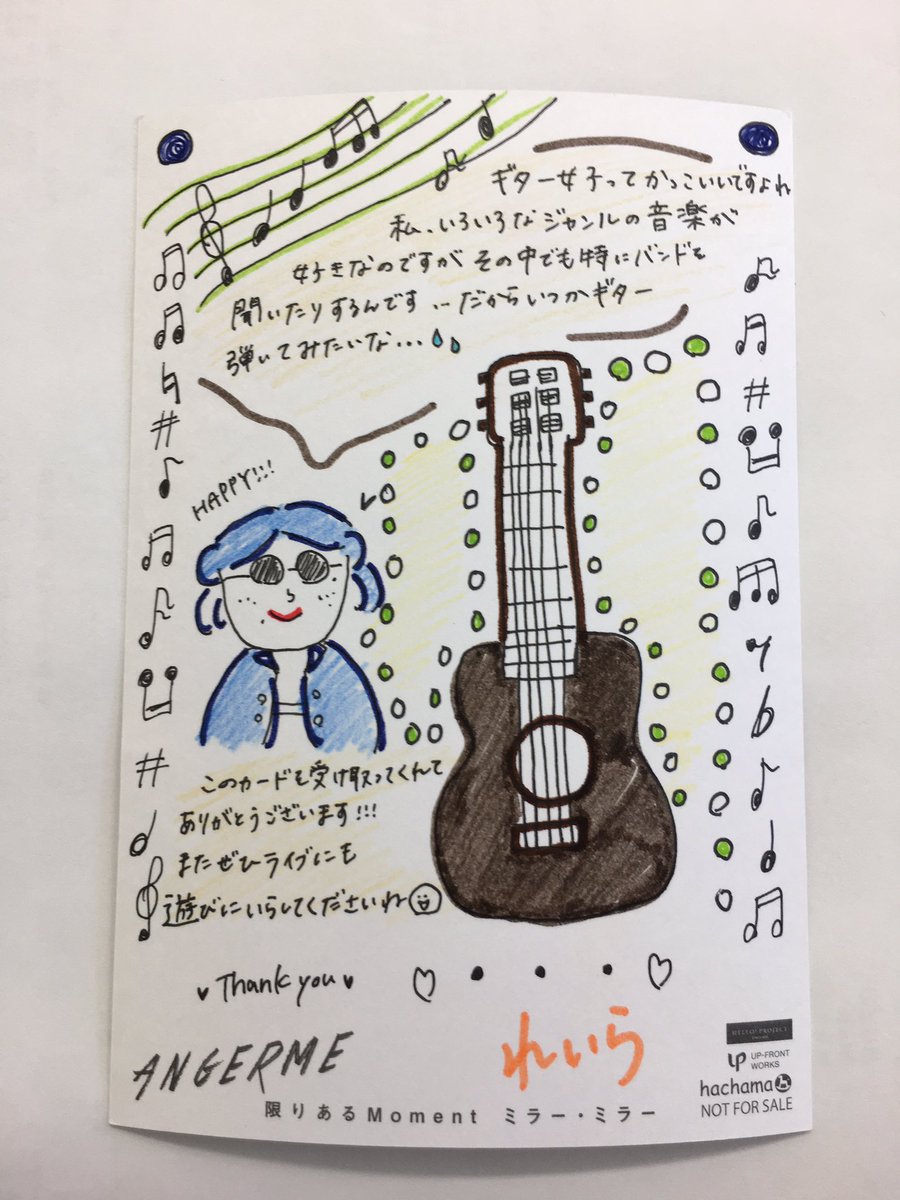 ギター女子ってかっこいいですよね
私、いろいろなジャンルの音楽が
好きなのですが その中でも特にバンドを
聞いたりするんです...だからいつかギター
弾いてみたいな...
HAPPY!!!
このカードを受け取ってくれて
ありがとうございます!!!
またぜひライブにも
遊びにいらしてくださいね
♥Thank you♥
ANGERME
れいら
HELLO! PROJECT
UP-FRONT
WORKS
hachama
NOT FOR SALE
限りあるMoment ミラー・ミラー